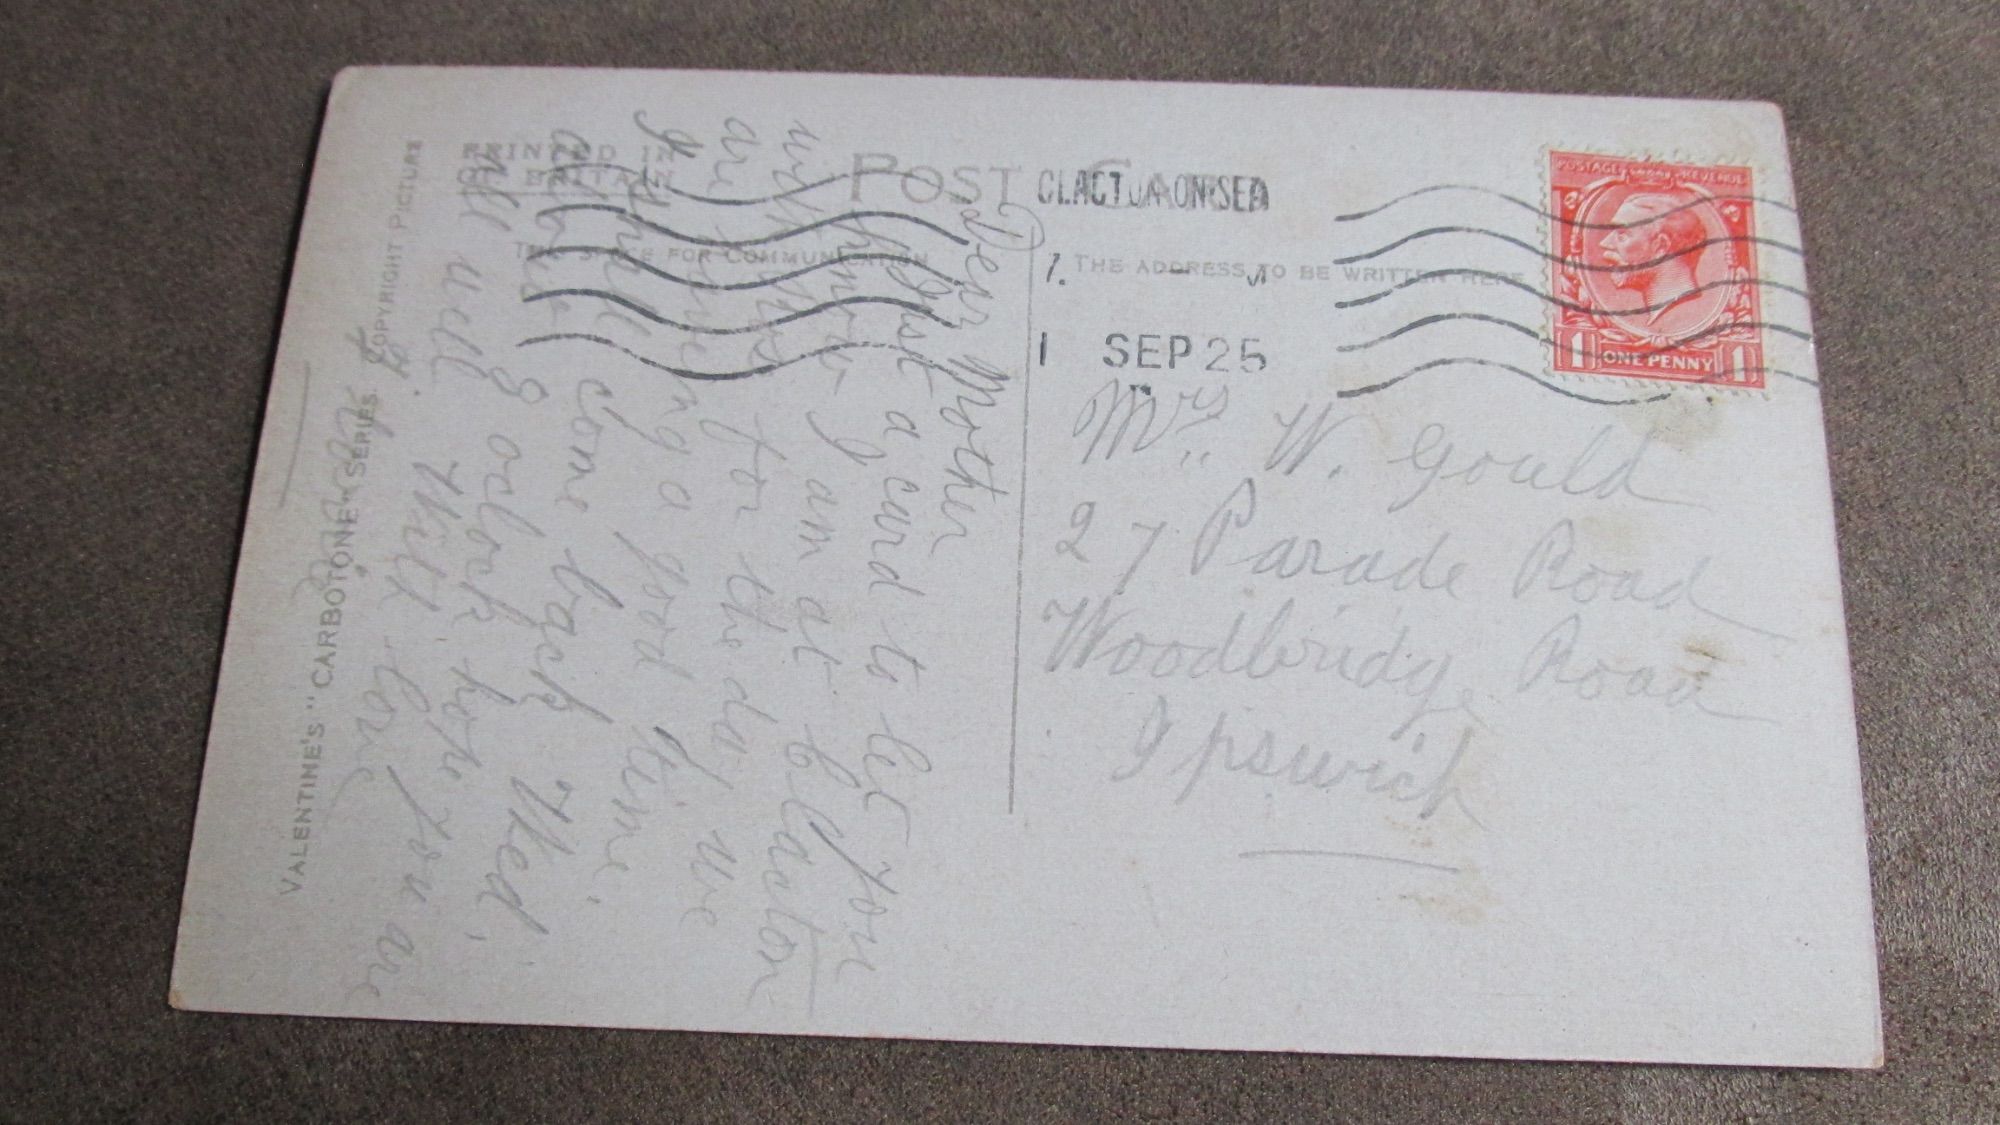 PRINTED IN
BRITAIN
POST CARD
THIS SPACE FOR COMMUNICATION
THE ADDRESS TO BE WRITTEN HERE
CLACTON-ON-SEA
1 SEP 25
POSTAGE REVENUE
1 ONE PENNY 1
Dear Mother
Just a card to let you
know I am at Clacton
with for the day we
are having a good time.
I shall come back Wed,
about 8 oclock hope you are
all well With love
VALENTINE'S "CARBOTONE" SERIES. COPYRIGHT PICTURE
Mrs W. Gould
27 Parade Road
Woodbridge Road
Ipswich